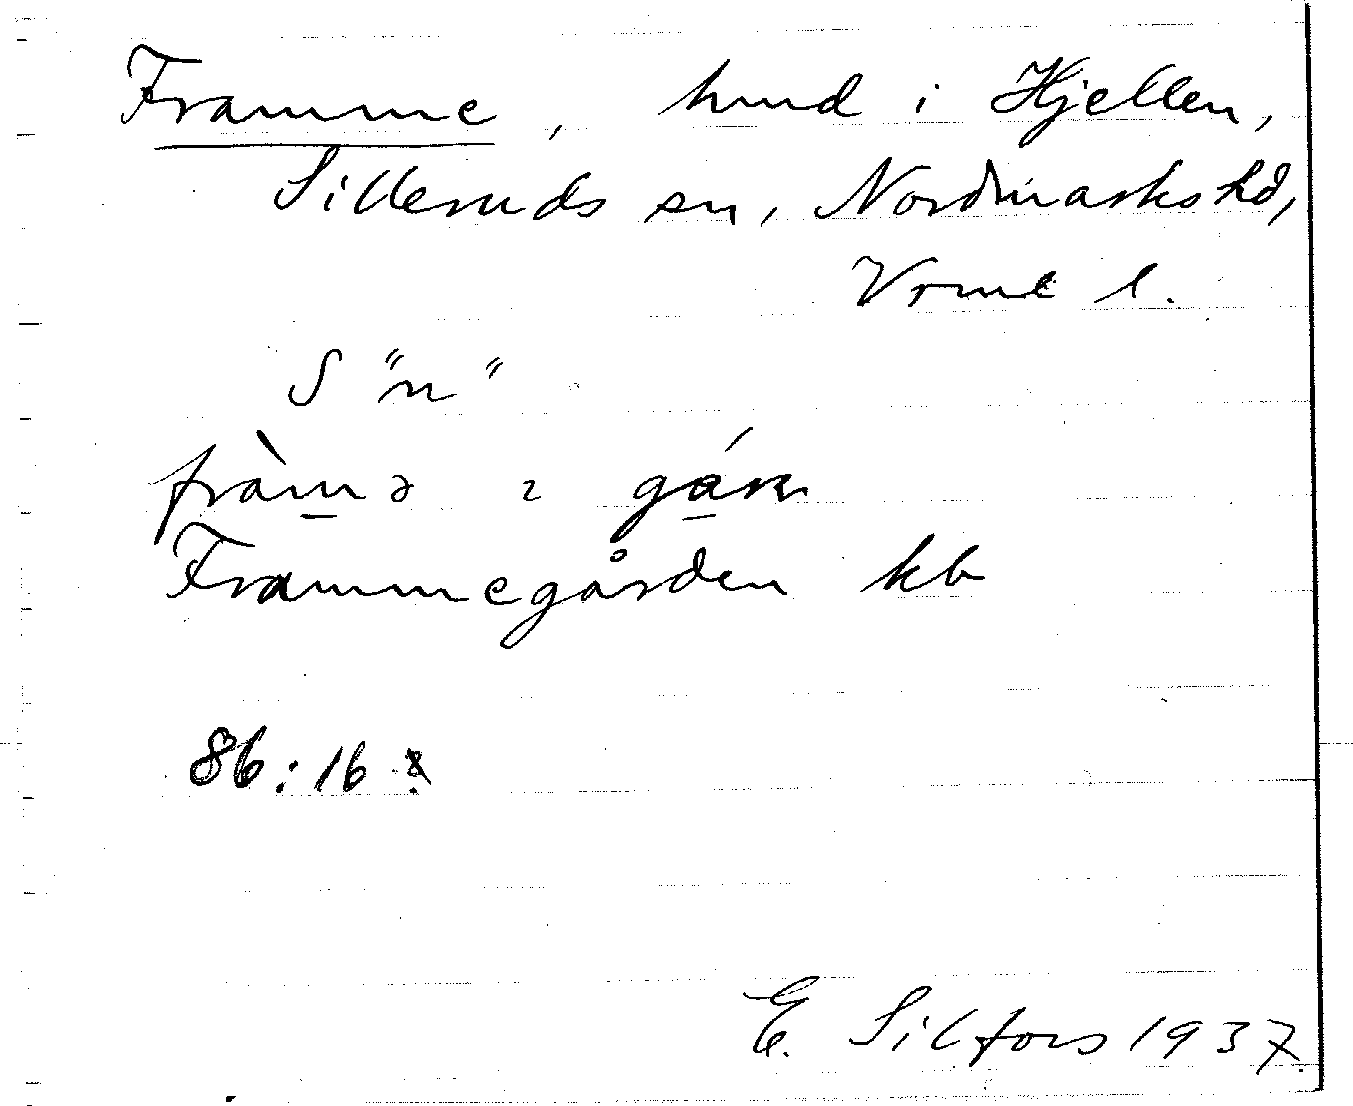 Framme, hmd i Hjellen,
Silleruds sn, Nordmarks hd,
Vrml l.
S "n"
fràmə 2 gárn
Frammegården kb
86:16
E. Silfors 1937.